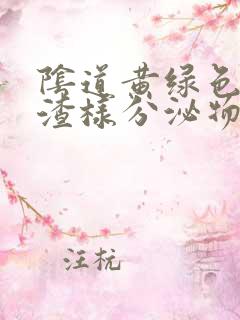 陰道黄绿色
渣样分泌物
汪杭